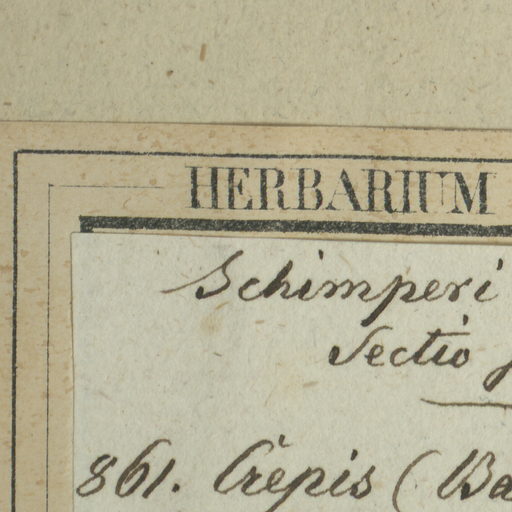 HERBARIUM
Schimperi
Sectio
861. Crepis (Ba